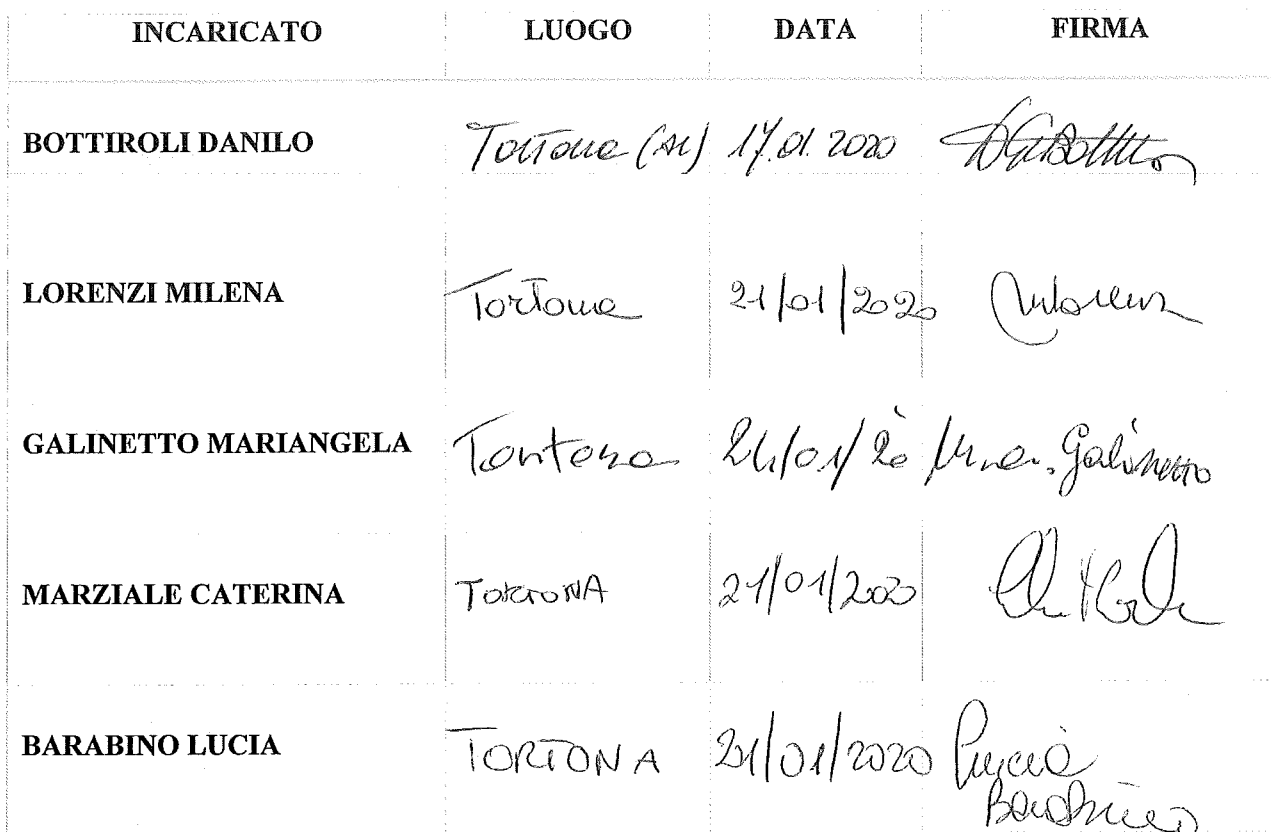 INCARICATO LUOGO DATA FIRMA
BOTTIROLI DANILO Tortona (AL) 17.01.2020
LORENZI MILENA Tortona 21/01/2020
GALINETTO MARIANGELA Tortona 24/01/20 Galinetto
MARZIALE CATERINA TORTONA 21/01/2020
BARABINO LUCIA TORTONA 21/01/2020 Lucia
Barabino